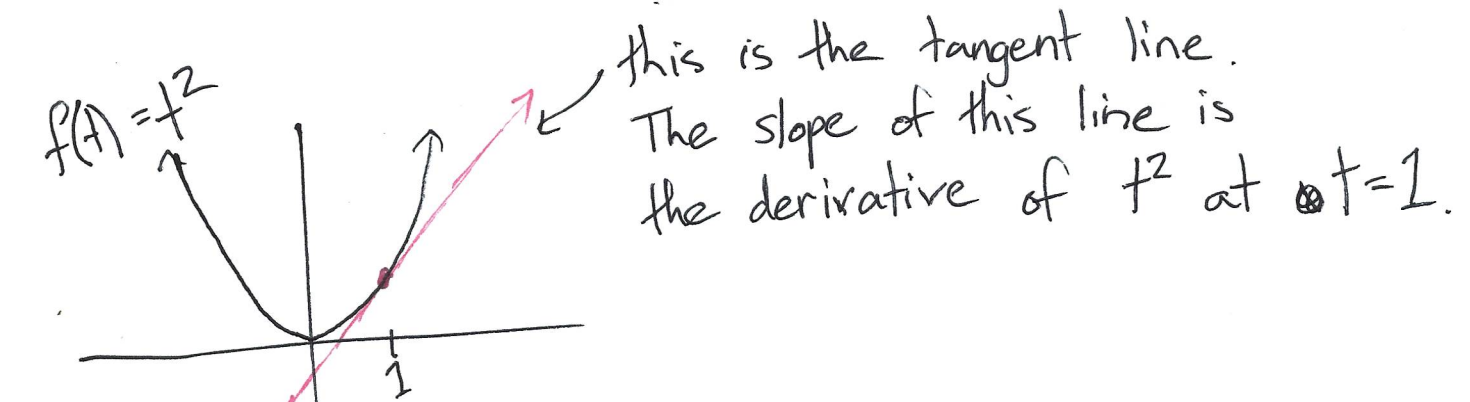 f(t) = t²
this is the tangent line.
The slope of this line is
the derivative of t² at t=1.
1